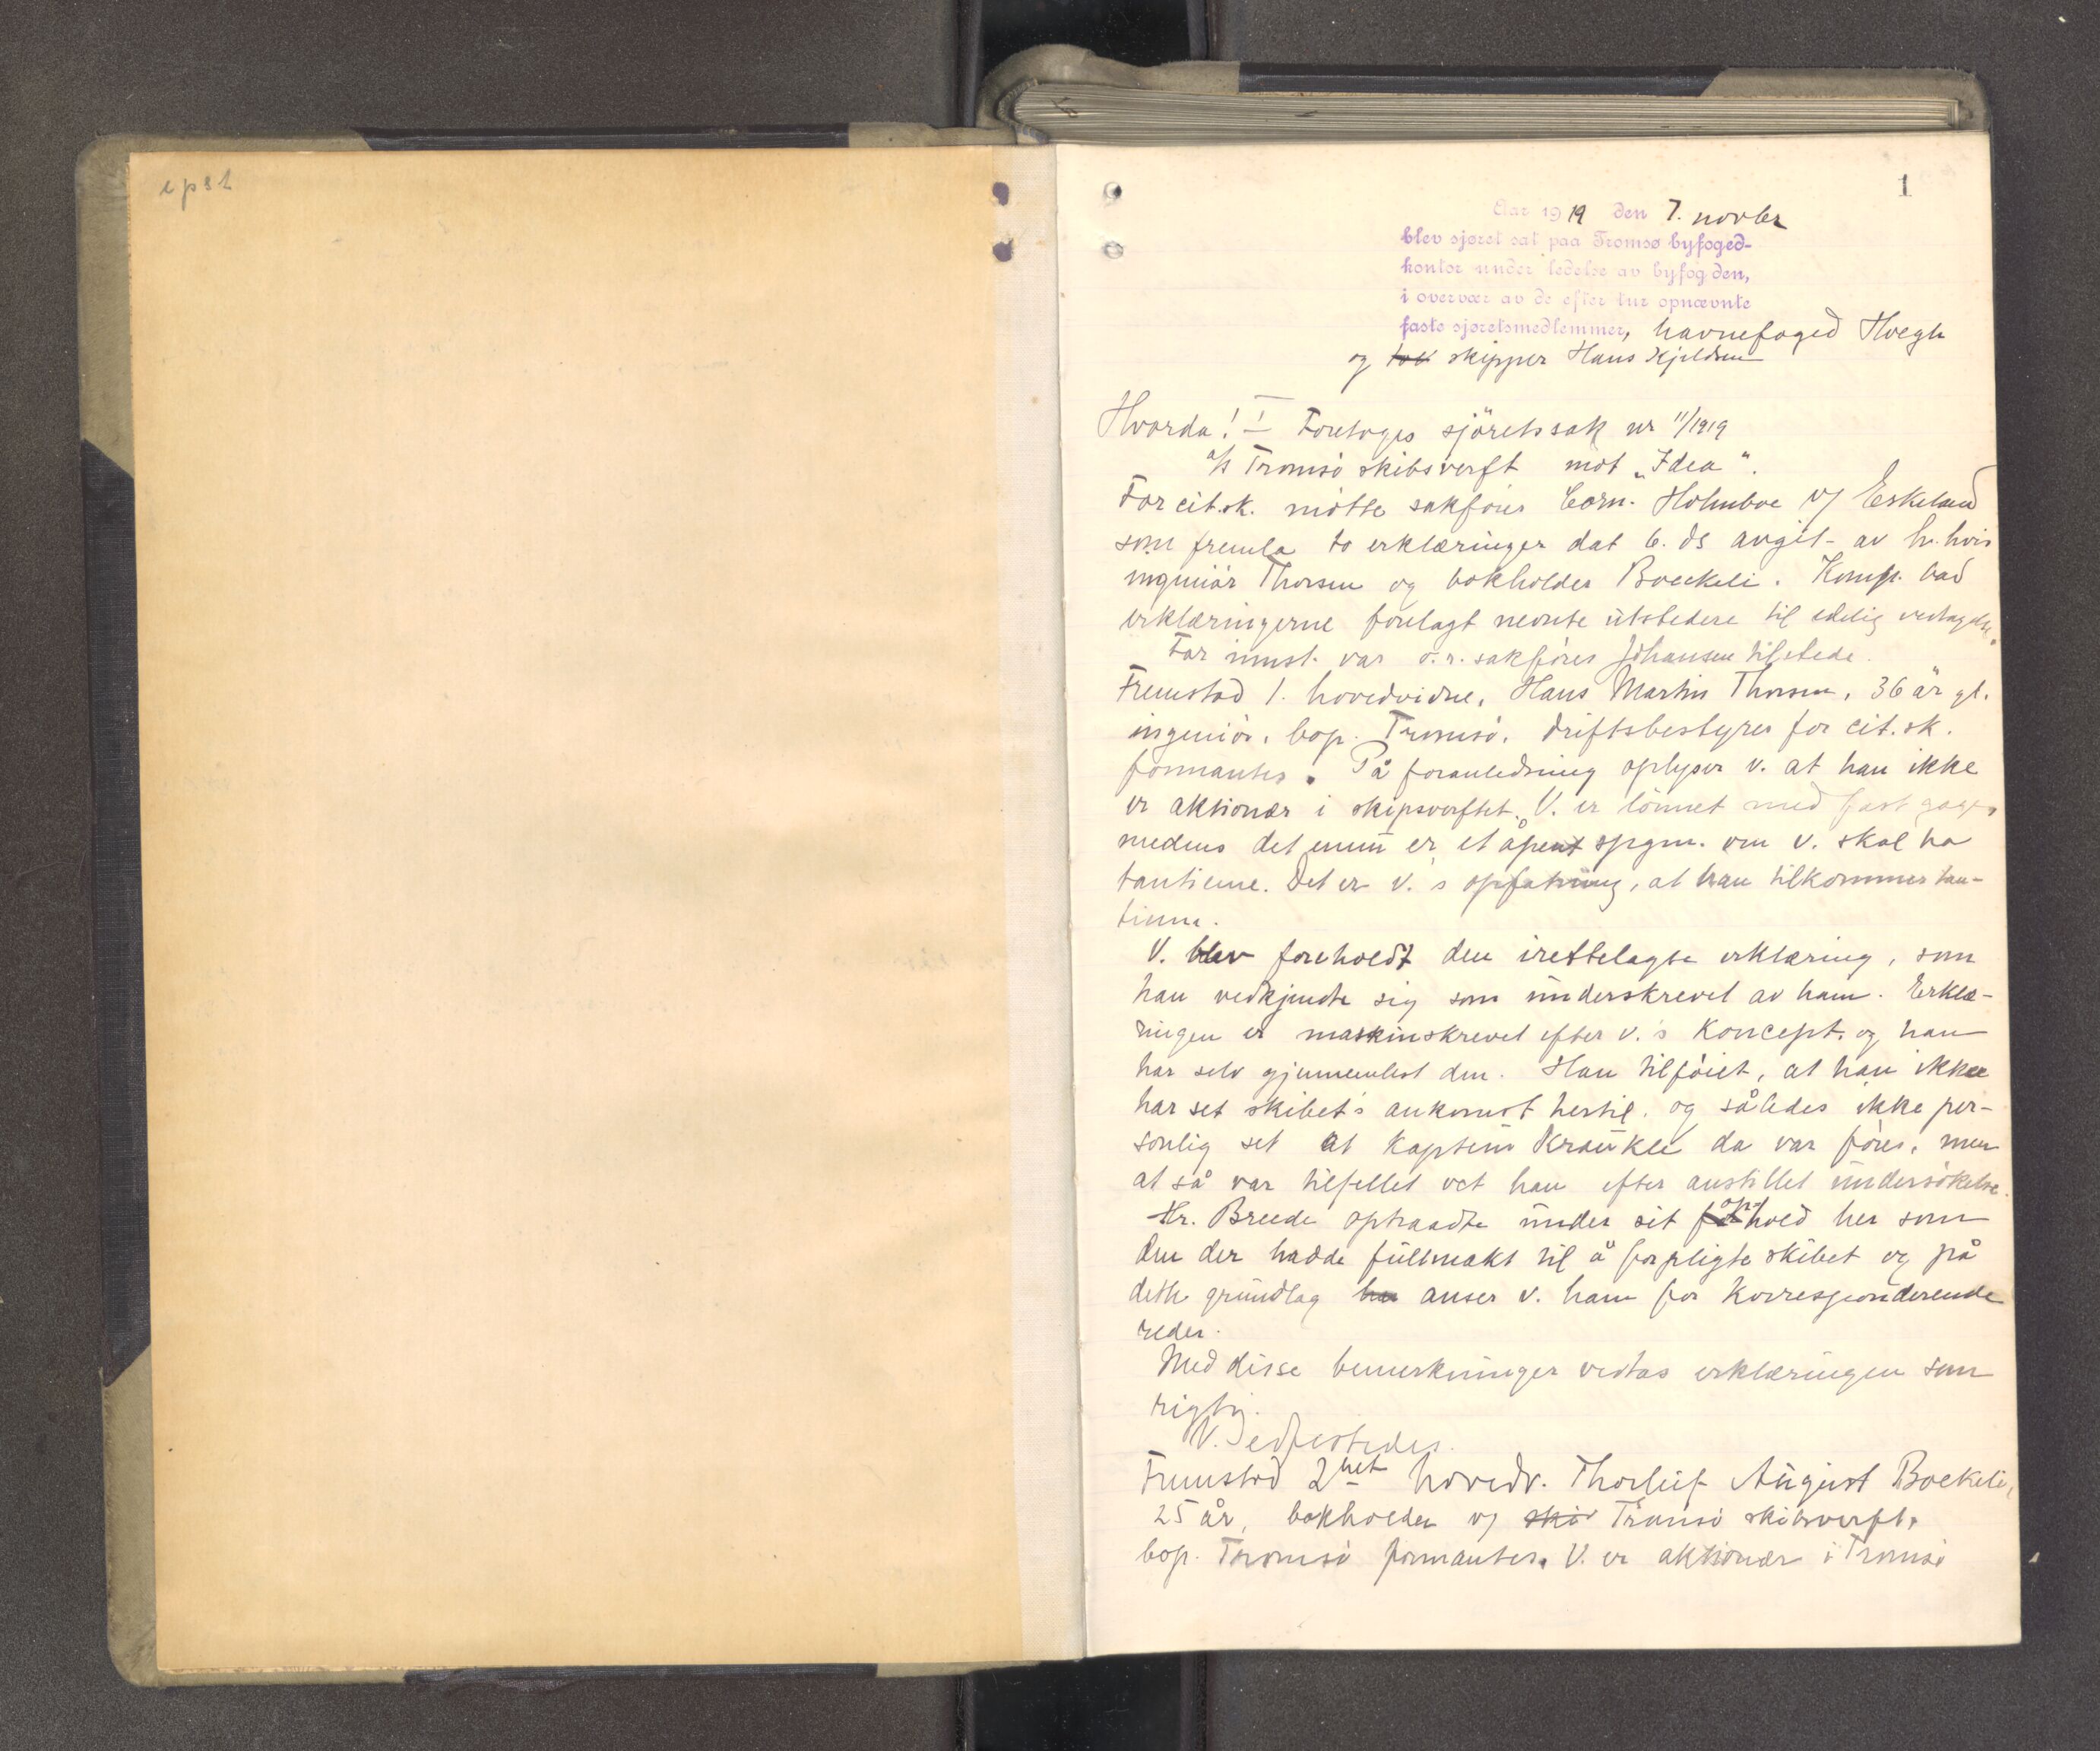 epst
1
Aar 1919 den 7. novbr
blev sjøret sat paa Tromsø byfoged-
kontor under ledelse av byfogden,
i overvær av de efter tur opnævnte
faste sjøretsmedlemmer, havnefoged Hvegh
og skipper Hans Kjeldsen
Hvorda! I Foretoges sjöretssak nr 11/1919
a/s Tromsö skibsverft mot „Idea“.
For cit.sk. mötte sakförer Corn. Holmboe v/ Eskeland
som fremla to erklæringer dat 6. ds avgit av hr. hvis
ingeniör Thorsen og bokholder Boeckeli. Komp. bad
erklæringerne forelagt nevnte utstedere til edelig vedtagelse.
For innst. var o.r.sakförer Johansen tilstede.
Fremstod 1. hovedvidne, Hans Martin Thorsen, 36 år gl.
ingeniör, bop. Tromsö, driftsbestyrer for cit.sk.
formantes. På foranledning oplyser v. at han ikke
er aktionær i skipsverftet. V. er lönnet med fast gage,
medens det ennu er et åpent spgm. om v. skal ha
tantieme. Det er v.'s opfatning, at han tilkommer tan-
tieme.
V. blev foreholdt den irettelagte erklæring, som
han vedkjendte sig som underskrevet av ham. Erklæ-
ringen er maskinskrevet efter v.'s koncept. og han
har selv gjennemlest den. Han tilföiet, at han ikke
har set skibet's ankomst hertil. og således ikke per-
sonlig set at kaptein Kraukle da var förer, men
at så var tilfellet vet han efter anstillet undersökelse.
Hr. Breede optraadte under sit ophold her som
den der hadde fullmakt til å forpligte skibet og på
dette grundlag anser v. ham for korresponderende
reder.
Med disse bemerkninger vedtas erklæringen som
rigtig.
V. edfestedes.
Fremstod 2net hovedv. Thorleif August Boekeli,
25 år, bokholder v/ Tromsö skibsverft,
bop. Tromsö formantes. V. er aktionær i Tromsö